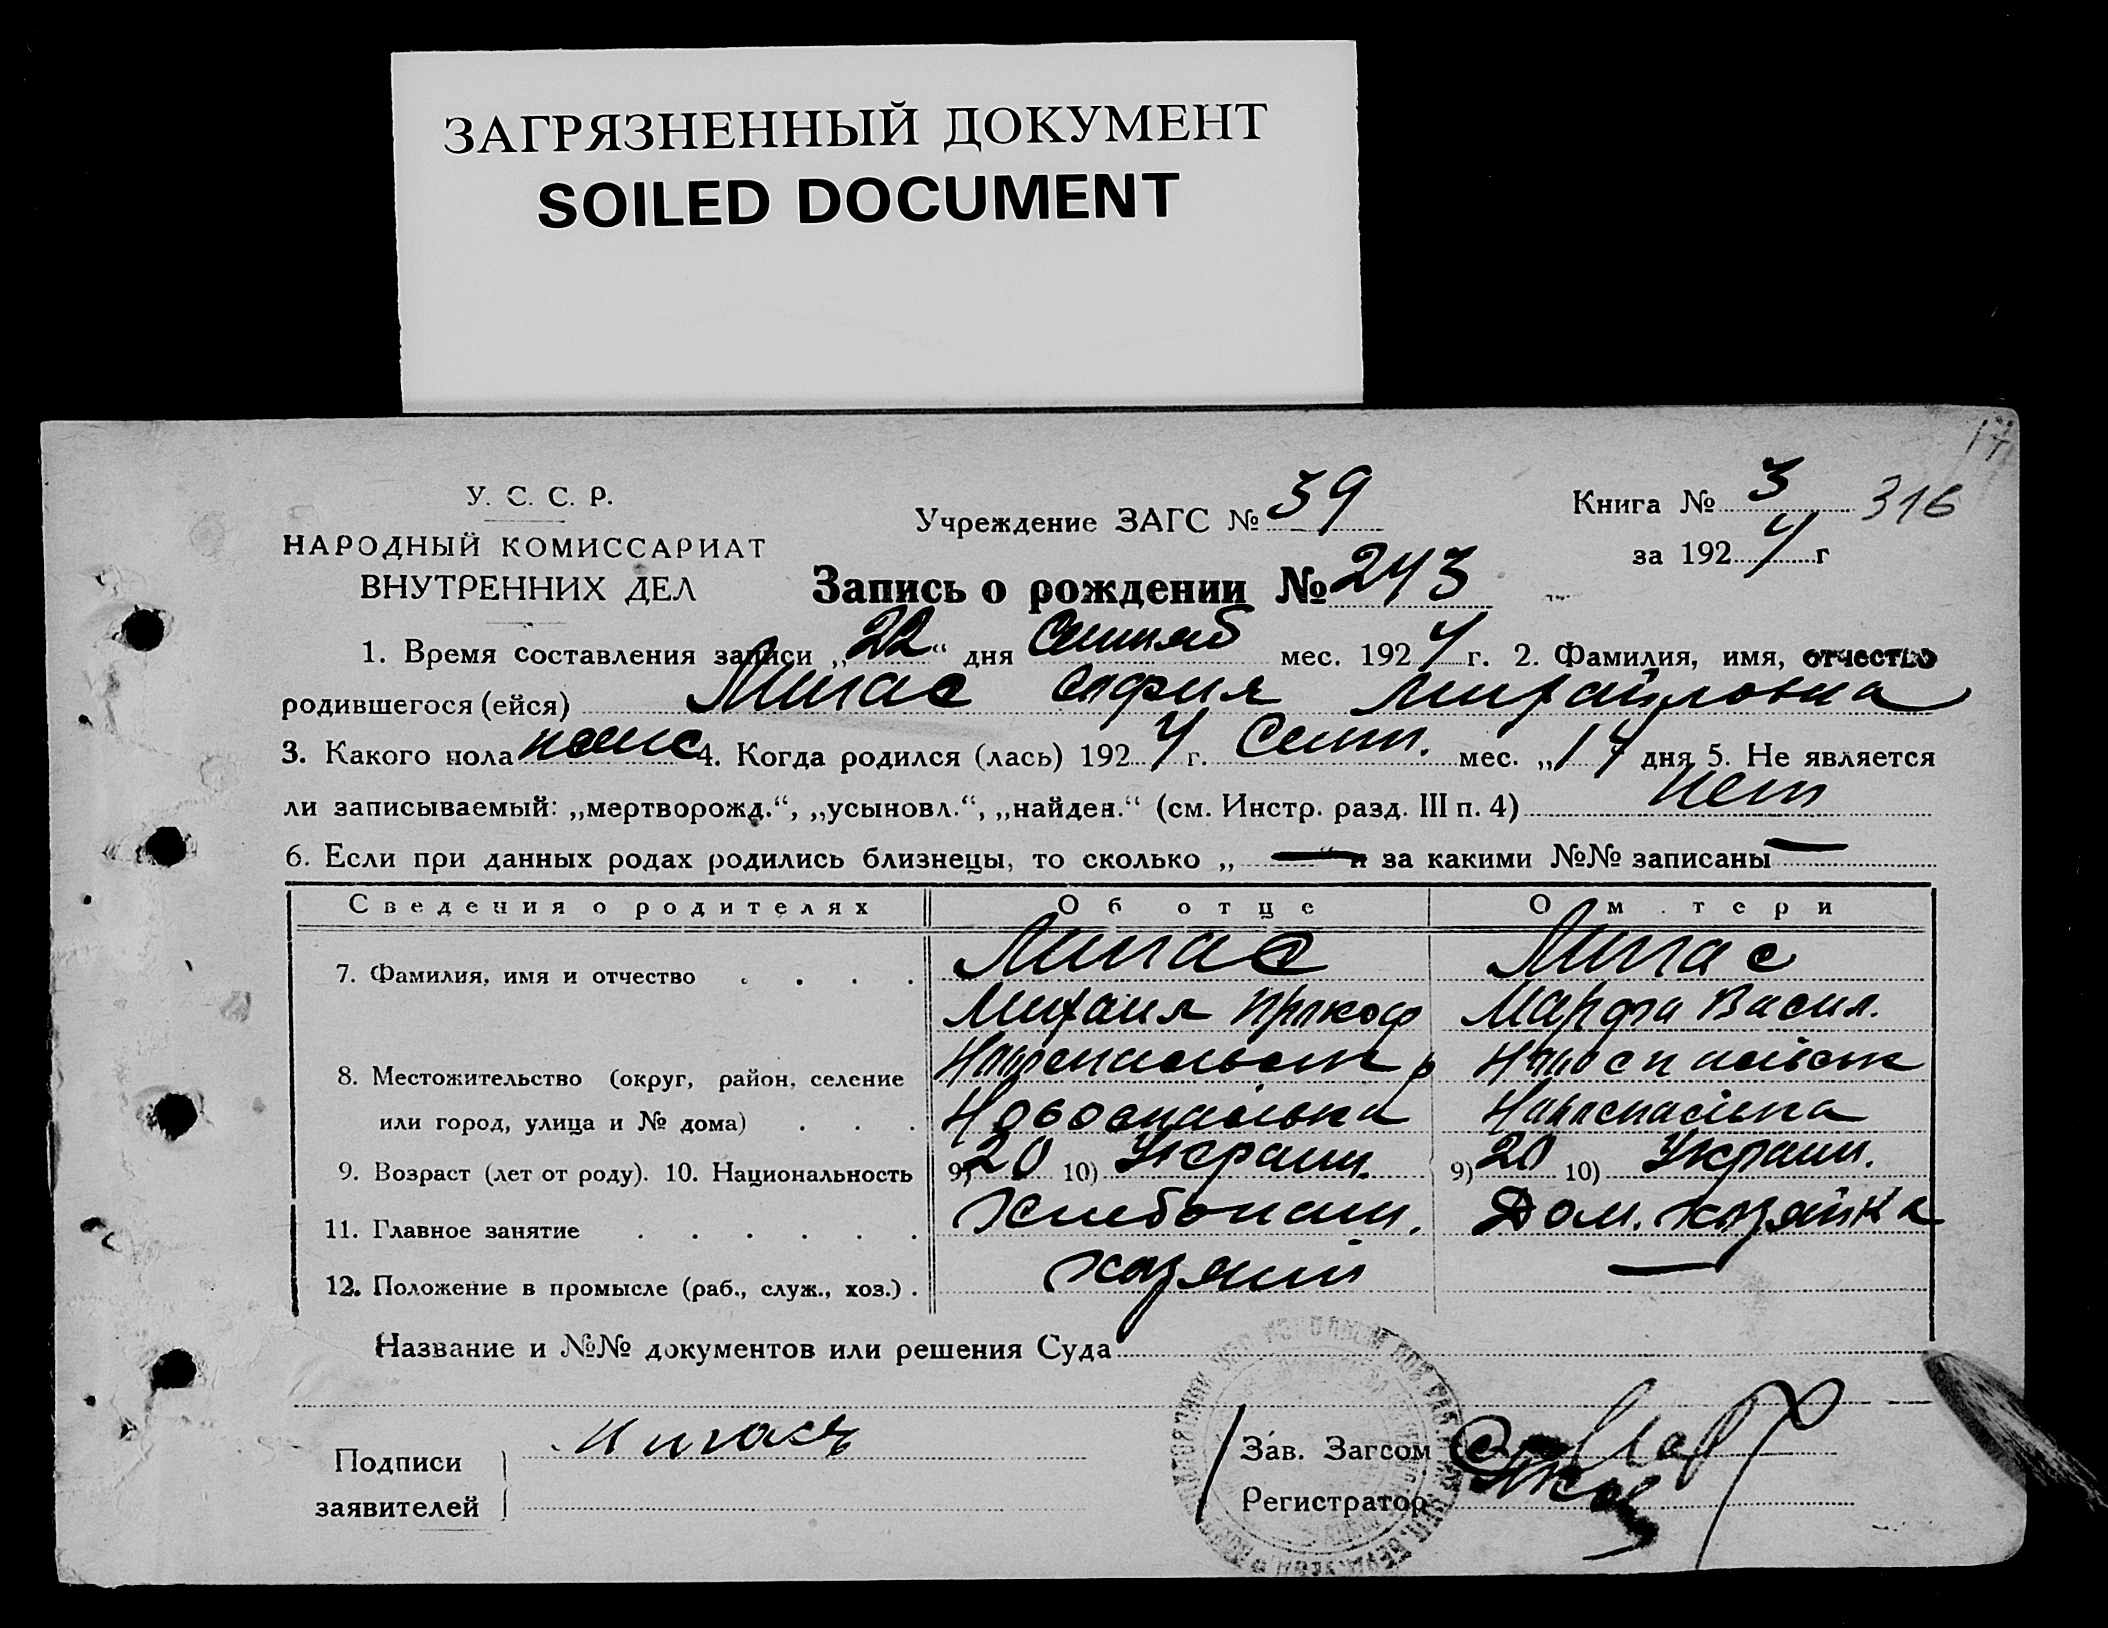 ЗАГРЯЗНЕННЫЙ ДОКУМЕНТ
SOILED DOCUMENT
17
У. С. С. Р.
НАРОДНЫЙ КОМИССАРИАТ
ВНУТРЕННИХ ДЕЛ
Учреждение ЗАГС № 39
Книга № 3 316
за 1924 г
Запись о рождении № 243
1. Время составления записи „22“ дня мес. 1924 г. 2. Фамилия, имя, отчество
родившегося (ейся) София Михайловна
3. Какого пола 4. Когда родился (лась) 1924 г. Сент. мес. „14 дня 5. Не является
ли записываемый: „мертворожд.“, „усыновл.“, „найден.“ (см. Инстр. разд. III п. 4) Нет
6. Если при данных родах родились близнецы, то сколько „ — “ и за какими №№ записаны —
Сведения о родителях Об отце О м тери
7. Фамилия, имя и отчество
Михаил Прокоф Марфа Васил.
8. Местожительство (округ, район, селение
или город, улица и № дома)
9. Возраст (лет от роду). 10. Национальность 9) 20 10) Украин. 9) 20 10) Украин.
11. Главное занятие Хлебопаш. Дом. хозяйка
12. Положение в промысле (раб., служ., хоз.) хозяин —
Название и №№ документов или решения Суда
Подписи
заявителей
Зав. Загсом
Регистратор